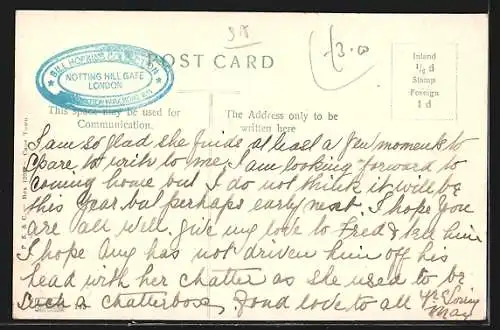 38
£3.00
BILL HOPKINS COLLECTION
NOTTING HILL GATE
LONDON
POST CARD
Inland
½ d
Stamp
Foreign
1 d
This space may be used for
Communication.
The Address only to be
written here
I am so glad she finds at least a few moments to
spare to write to me. I am looking forward to
coming home but I do not think it will be
this year but perhaps early next. I hope you
are all well. Give my love to Fred & tell him
I hope Amy has not driven him off his
head with her chatter as she used to be
such a chatterbox. Fond love to all Yr. Loving
May
Cape Town.